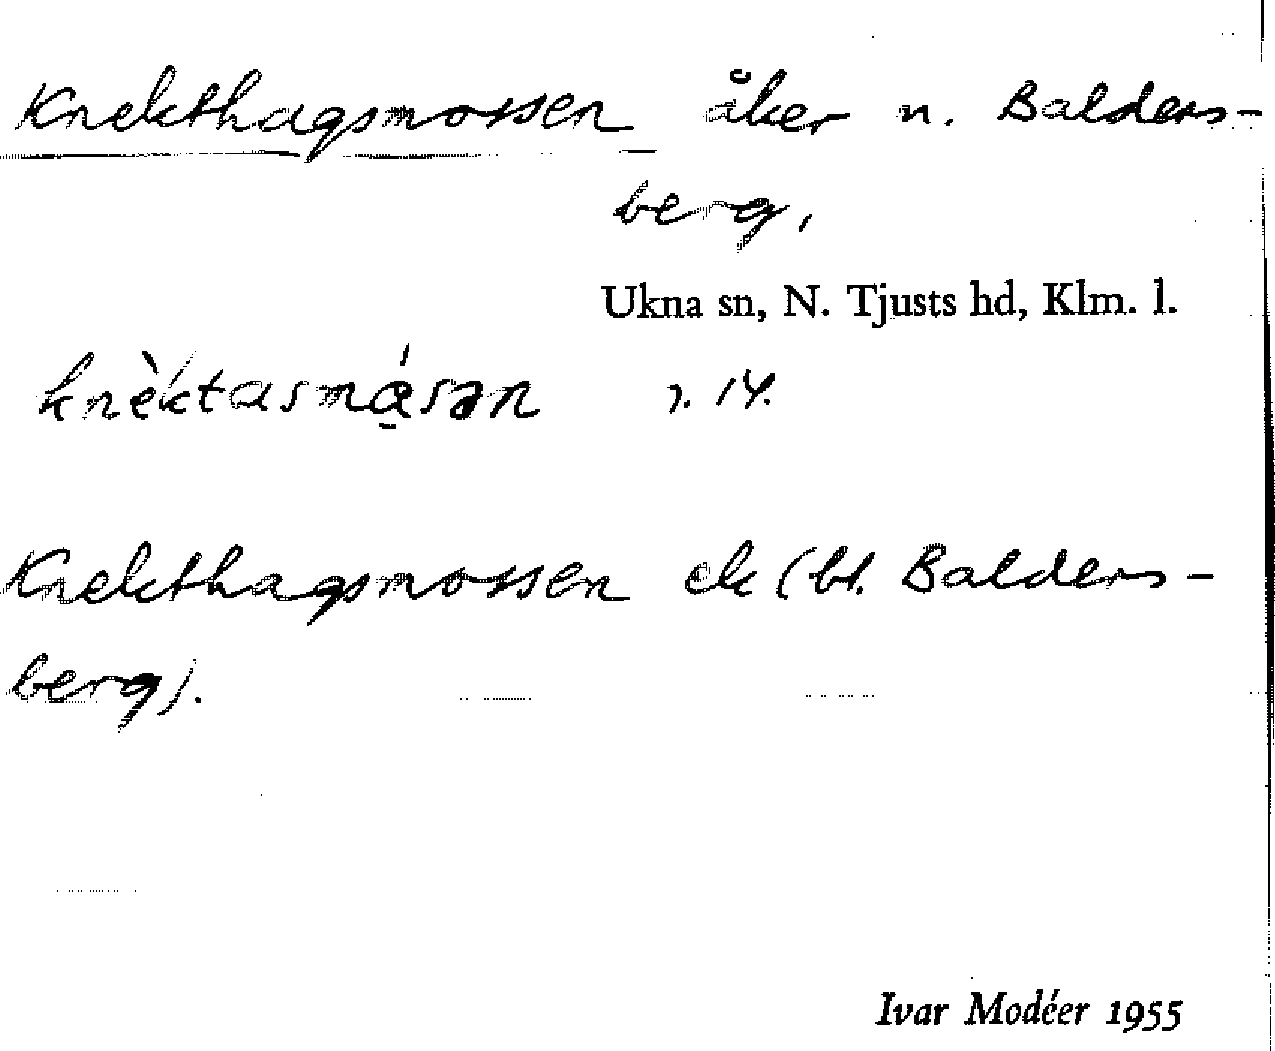 Knekthagsmossen åker n. Balders-
berg,
Ukna sn, N. Tjusts hd, Klm. l.
knὲktasmå̀sən s. 14.
Knekthagsmossen ek (bl. Balders-
berg).
Ivar Modéer 1955